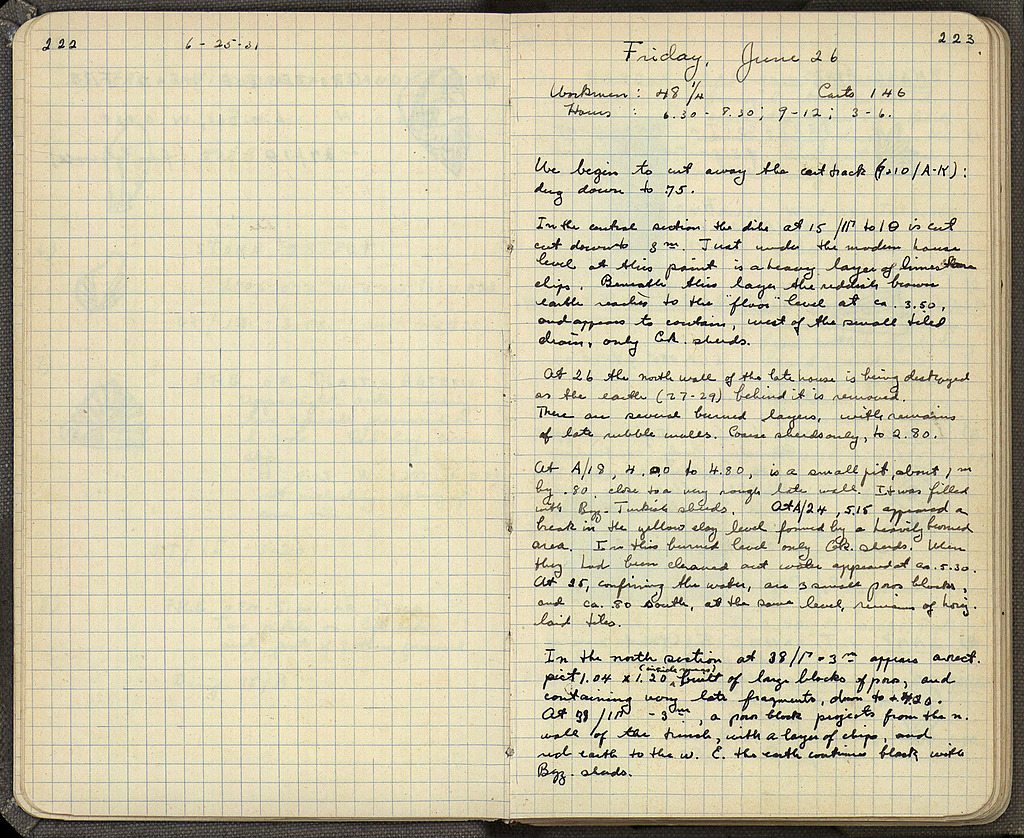 222
6-25-31
223
Friday, June 26
Workmen: 48 1/4 Carts 146
Hours : 6.30 - 8.30; 9-12; 3-6.
We begin to cut away the cart track (9.10/A-K):
dug down to .75.
In the central section the dike at 15/ to 1Θ is cut
cut down to 3 m. Just under the modern house
level at this point is a heavy layer of limestone
chips. Beneath this layer the reddish brown
earth reaches to the "floor" level at ca. 3.50,
and appears to contain, west of the small tiled
drain, only Gk. sherds.
At 26 the north wall of the late house is being destroyed
as the earth (27-29) behind it is removed.
There are several burned layers, with remains
of late rubble walls. Coarse sherds only, to 2.80.
At A/18, 4.00 to 4.80, is a small pit, about 1 m
by .80, close to a very rough late wall. It was filled
with Byz-Turkish sherds. At A/24, 5.15 appeared a
break in the yellow clay level formed by a heavily burned
area. In this burned level only Gk. sherds. When
they had been cleaned out water appeared at ca. 5.30.
At 25, confining the water, are 3 small poros blocks,
and ca. .80 south, at the same level, remains of horiz.
laid tiles.
In the north section at 38/Γ - 3 m appears a rect.
pit 1.04 x 1.20 (inside meas.), built of large blocks of poros, and
containing very late fragments, down to
At 39/ - 3 m, a poros block projects from the n.
wall of the trench, with a layer of chips, and
red earth to the w. E. the earth continues black with
Byz. sherds.